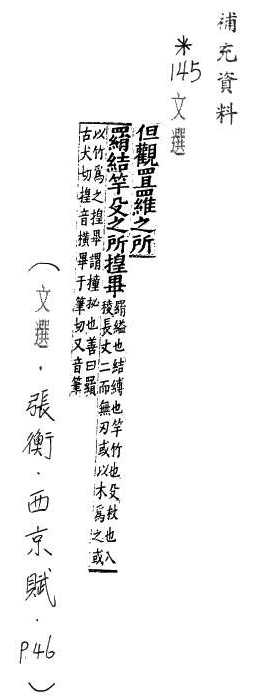 補充資料
*145 文選
但觀罝羅之所
羂結竿殳之所揘畢
羂縊也結縛也竿竹也殳杖也八
稜長丈二而無刃或以木爲之或
以竹爲之揘畢謂撞柲也善曰羂
古犬切揘音橫畢于筆切又音筆
(文選·張衡·西京賦·P.46)